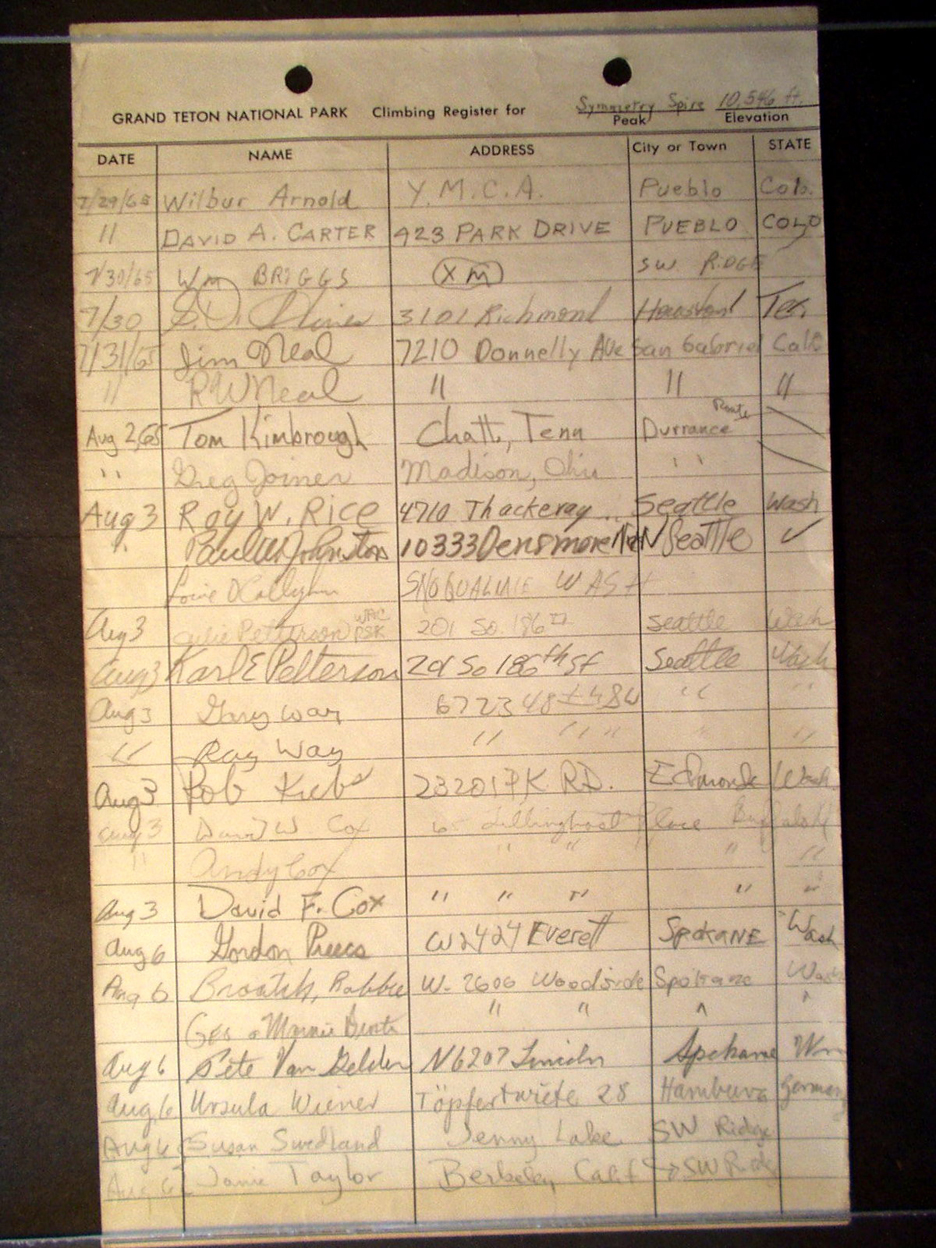 GRAND TETON NATIONAL PARK Climbing Register for Symmetry Spire 10,546 ft.
Peak Elevation
DATE NAME ADDRESS City or Town STATE
7/29/65 Wilbur Arnold Y.M.C.A. Pueblo Colo.
11 DAVID A. CARTER 923 PARK DRIVE PUEBLO COLO
7/30/65 Wm BRIGGS XM SW RIDGE
7/30 3101 Richmond Houston Tex
7/31/65 Jim Neal 7210 Donnelly Ave San Gabriel Calif
" R W Neal " " "
Aug 2,65 Tom Kimbrough Chatt, Tenn Durrance Route
" Greg Joiner Madison, Ohio "
Aug 3 Ray W. Rice 4710 Thackeray Seattle Wash
" Paul W Johnston 10333 Densmore N Seattle ✓
SNOQUALMIE WASH
Aug 3 Julie Petterson 201 So. 186th Seattle Wash
Aug 3 Karl E Petterson 201 So 186th St Seattle Wash
Aug 3 Gary Way 6723 48th " "
" Ray Way " " " " "
Aug 3 Bob 23201 PK RD. Edmonds Wash
Aug 3 David W Cox 65 Place Buffalo
" Andy Cox " " " " "
Aug 3 David F. Cox " " " " "
Aug 6 Gordon W2424 Everett SPOKANE Wash
Aug 6 Robbie W. 2606 Woodside Spokane Wash
" " " "
Aug 6 Pete Van Gelder N6207 Lincoln Spokane Wn
Aug. 6 Ursula Wiener Töpfertwiete 28 Hamburg Germany
Aug 6 Susan Swedland Jenny Lake SW Ridge
Aug 6 Jamie Taylor Berkeley, Calif → SW Ridge